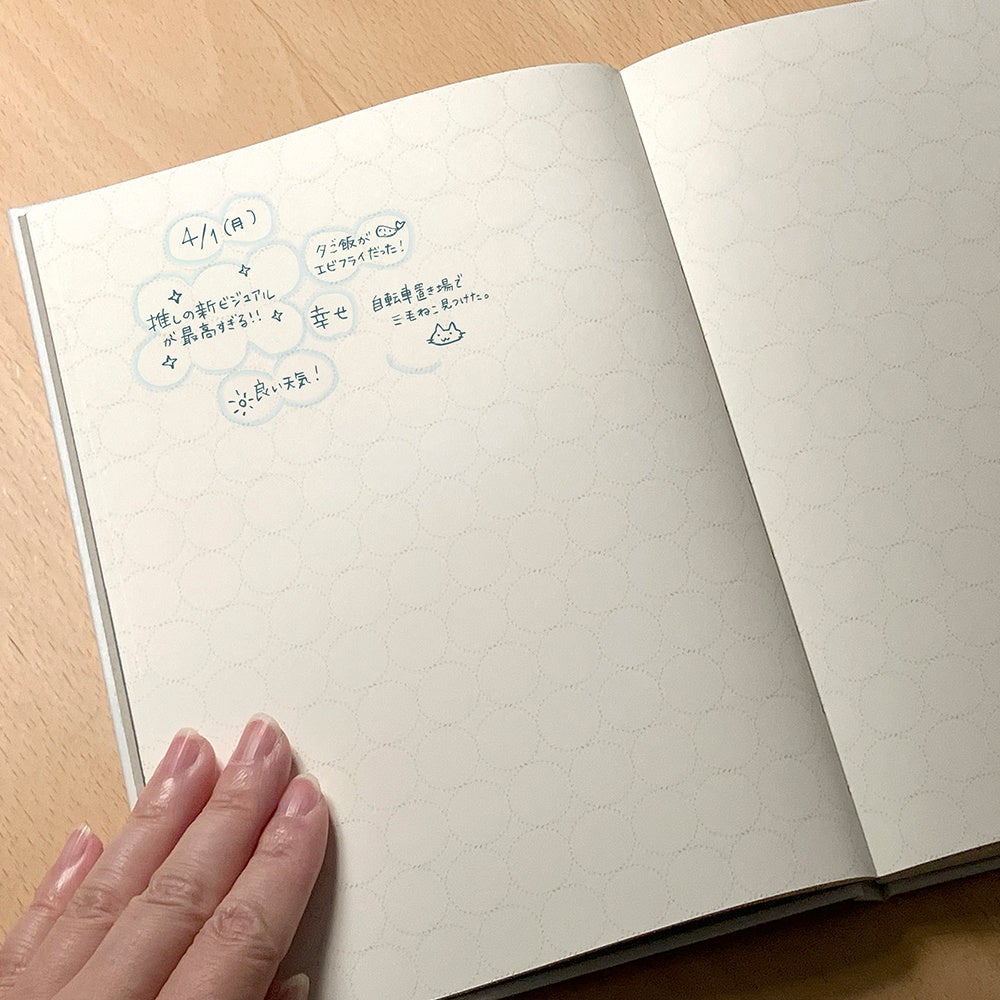 4/1(月)
推しの新ビジュアル
が最高すぎる!!
良い天気!
夕ご飯が
エビフライだった!
幸せ
自転車置き場で
三毛ねこ見つけた。